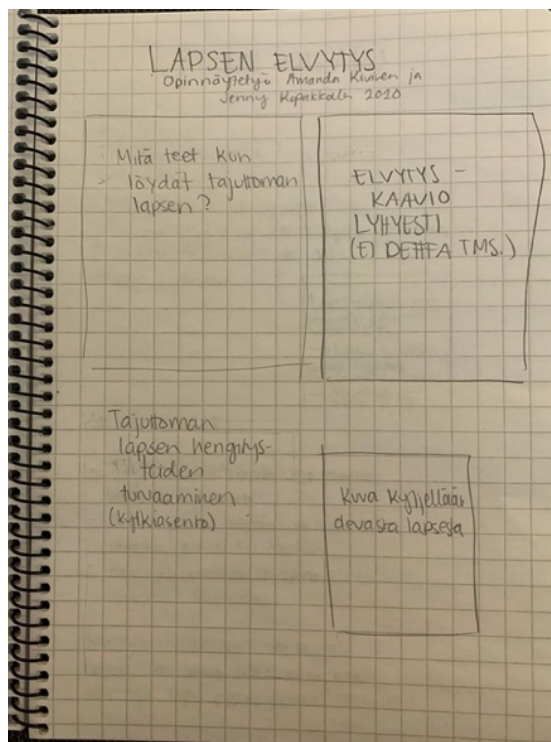 LAPSEN ELVYTYS
Opinnäytetyö Amanda Kivinen ja
Jenny 2020
Mitä teet kun
löydät tajuttoman
lapsen?
ELVYTYS -
KAAVIO
LYHYESTI
(EI TMS.)
Tajuttoman
lapsen hengitys-
teiden
turvaaminen
(kylkiasento)
Kuva kyljellään
devasta lapsesta